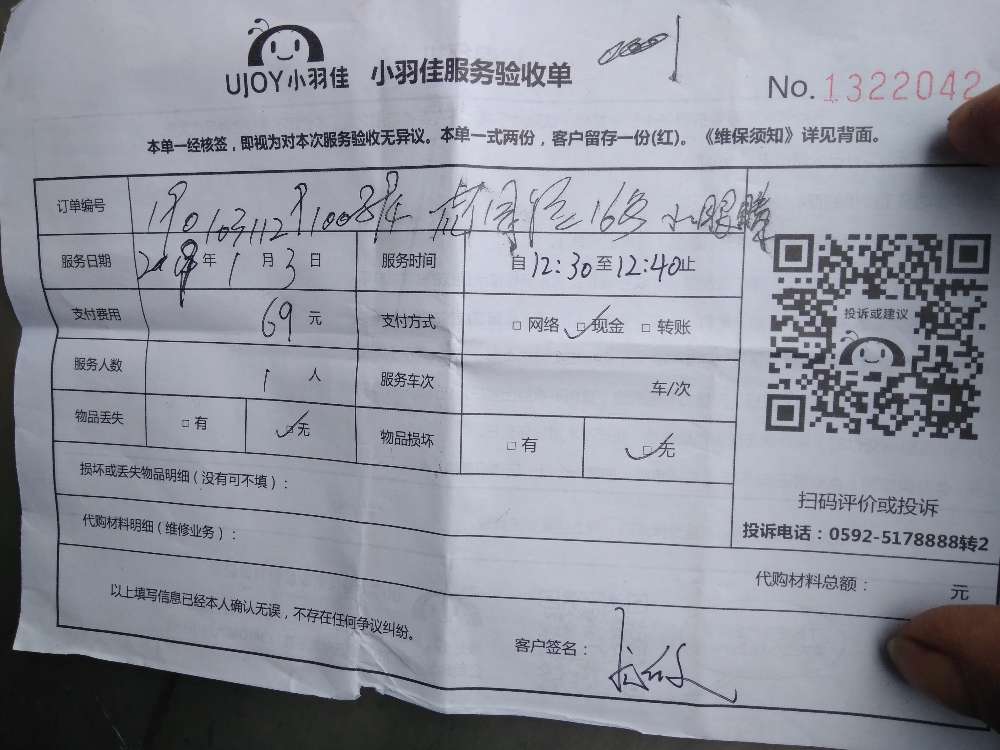 UJOY小羽佳 小羽佳服务验收单
No. 1322042
本单一经核签，即视为对本次服务验收无异议。本单一式两份，客户留存一份(红)。《维保须知》详见背面。
订单编号 16号
服务日期 年 1 月 3 日 服务时间 自 12:30 至 12:40 止
支付费用 69 元 支付方式 □ 网络 ☑ 现金 □ 转账
服务人数 1 人 服务车次 车/次
物品丢失 □ 有 ☑ 无 物品损坏 □ 有 ☑ 无
损坏或丢失物品明细（没有可不填）：
代购材料明细（维修业务）：
投诉或建议
扫码评价或投诉
投诉电话：0592-5178888转2
代购材料总额： 元
以上填写信息已经本人确认无误，不存在任何争议纠纷。
客户签名：